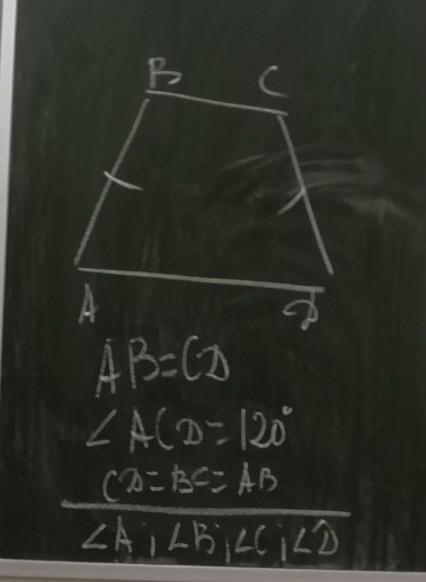 B C
A D
AB=CD
∠ACD=120°
CD=BC=AB
∠A; ∠B; ∠C; ∠D